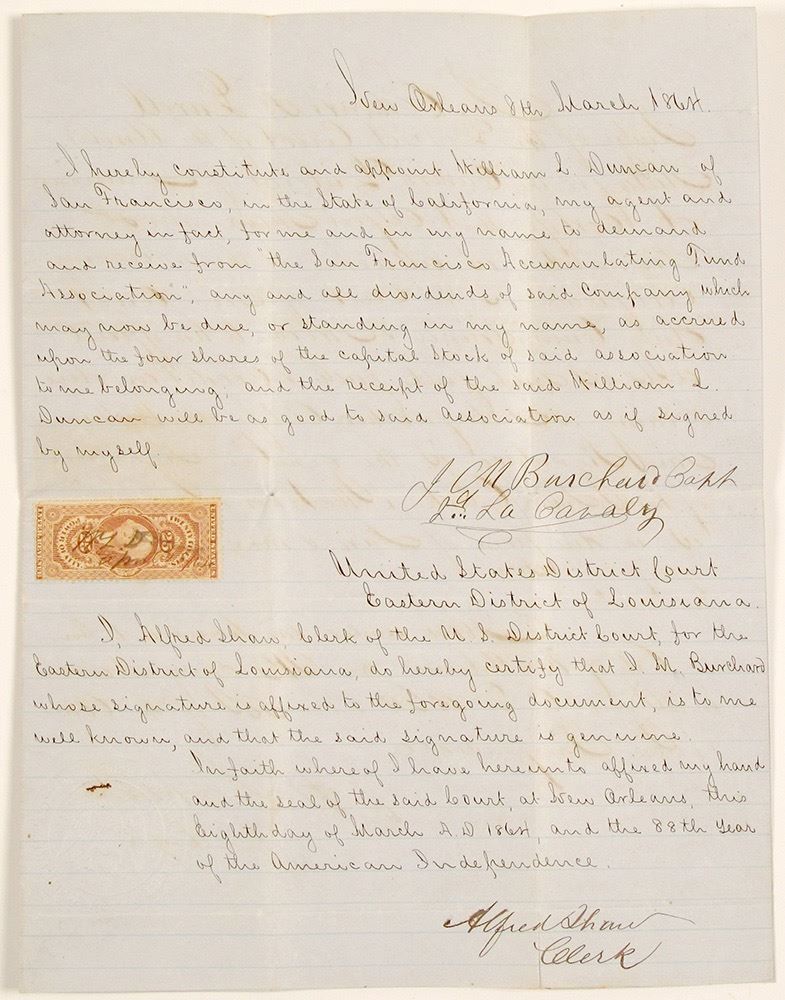 New Orleans 8th March 1864.
I hereby constitute and appoint William L. Duncan of
San Francisco, in the State of California, my agent and
attorney in fact, for me and in my name to demand
and receive from "the San Francisco Accumulating Fund
Association", any and all dividends of said Company which
may now be due, or standing in my name, as accrued
upon the four shares of the capital stock of said association
to me belonging; and the receipt of the said William L.
Duncan will be as good to said Association as if signed
by myself.
J M Burchard Capt
2d La Cavaly
25
United States District Court
Eastern District of Louisiana.
I, Alfred Shaw, Clerk of the U. S. District Court, for the
Eastern District of Louisiana, do hereby certify that J. M. Burchard
whose signature is affixed to the foregoing document, is to me
well known, and that the said signature is genuine.
In faith whereof I have hereunto affixed my hand
and the seal of the said Court, at New Orleans, this
Eighth day of March A. D 1864, and the 88th Year
of the American Independence.
Alfred Shaw
Clerk